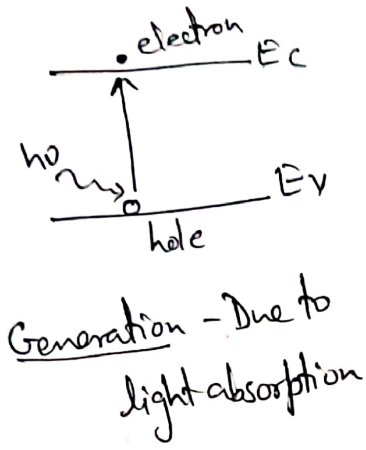 electron
Ec
hυ
Ev
hole
Generation - Due to
light absorption